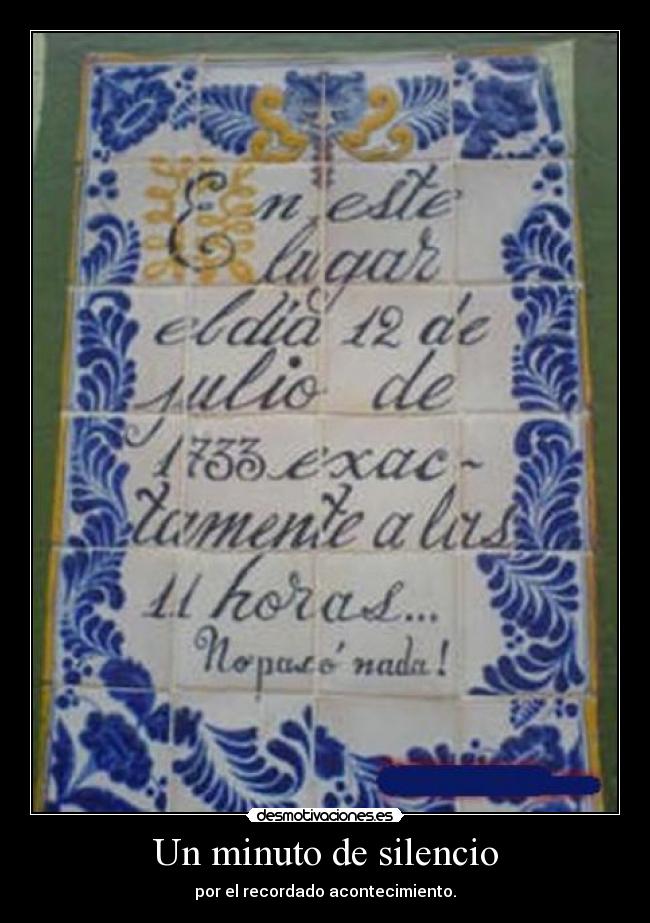 En este
lugar
el día 12 de
julio de
1733 exac-
tamente a las
11 horas...
No pasó nada!
desmotivaciones.es
Un minuto de silencio
por el recordado acontecimiento.